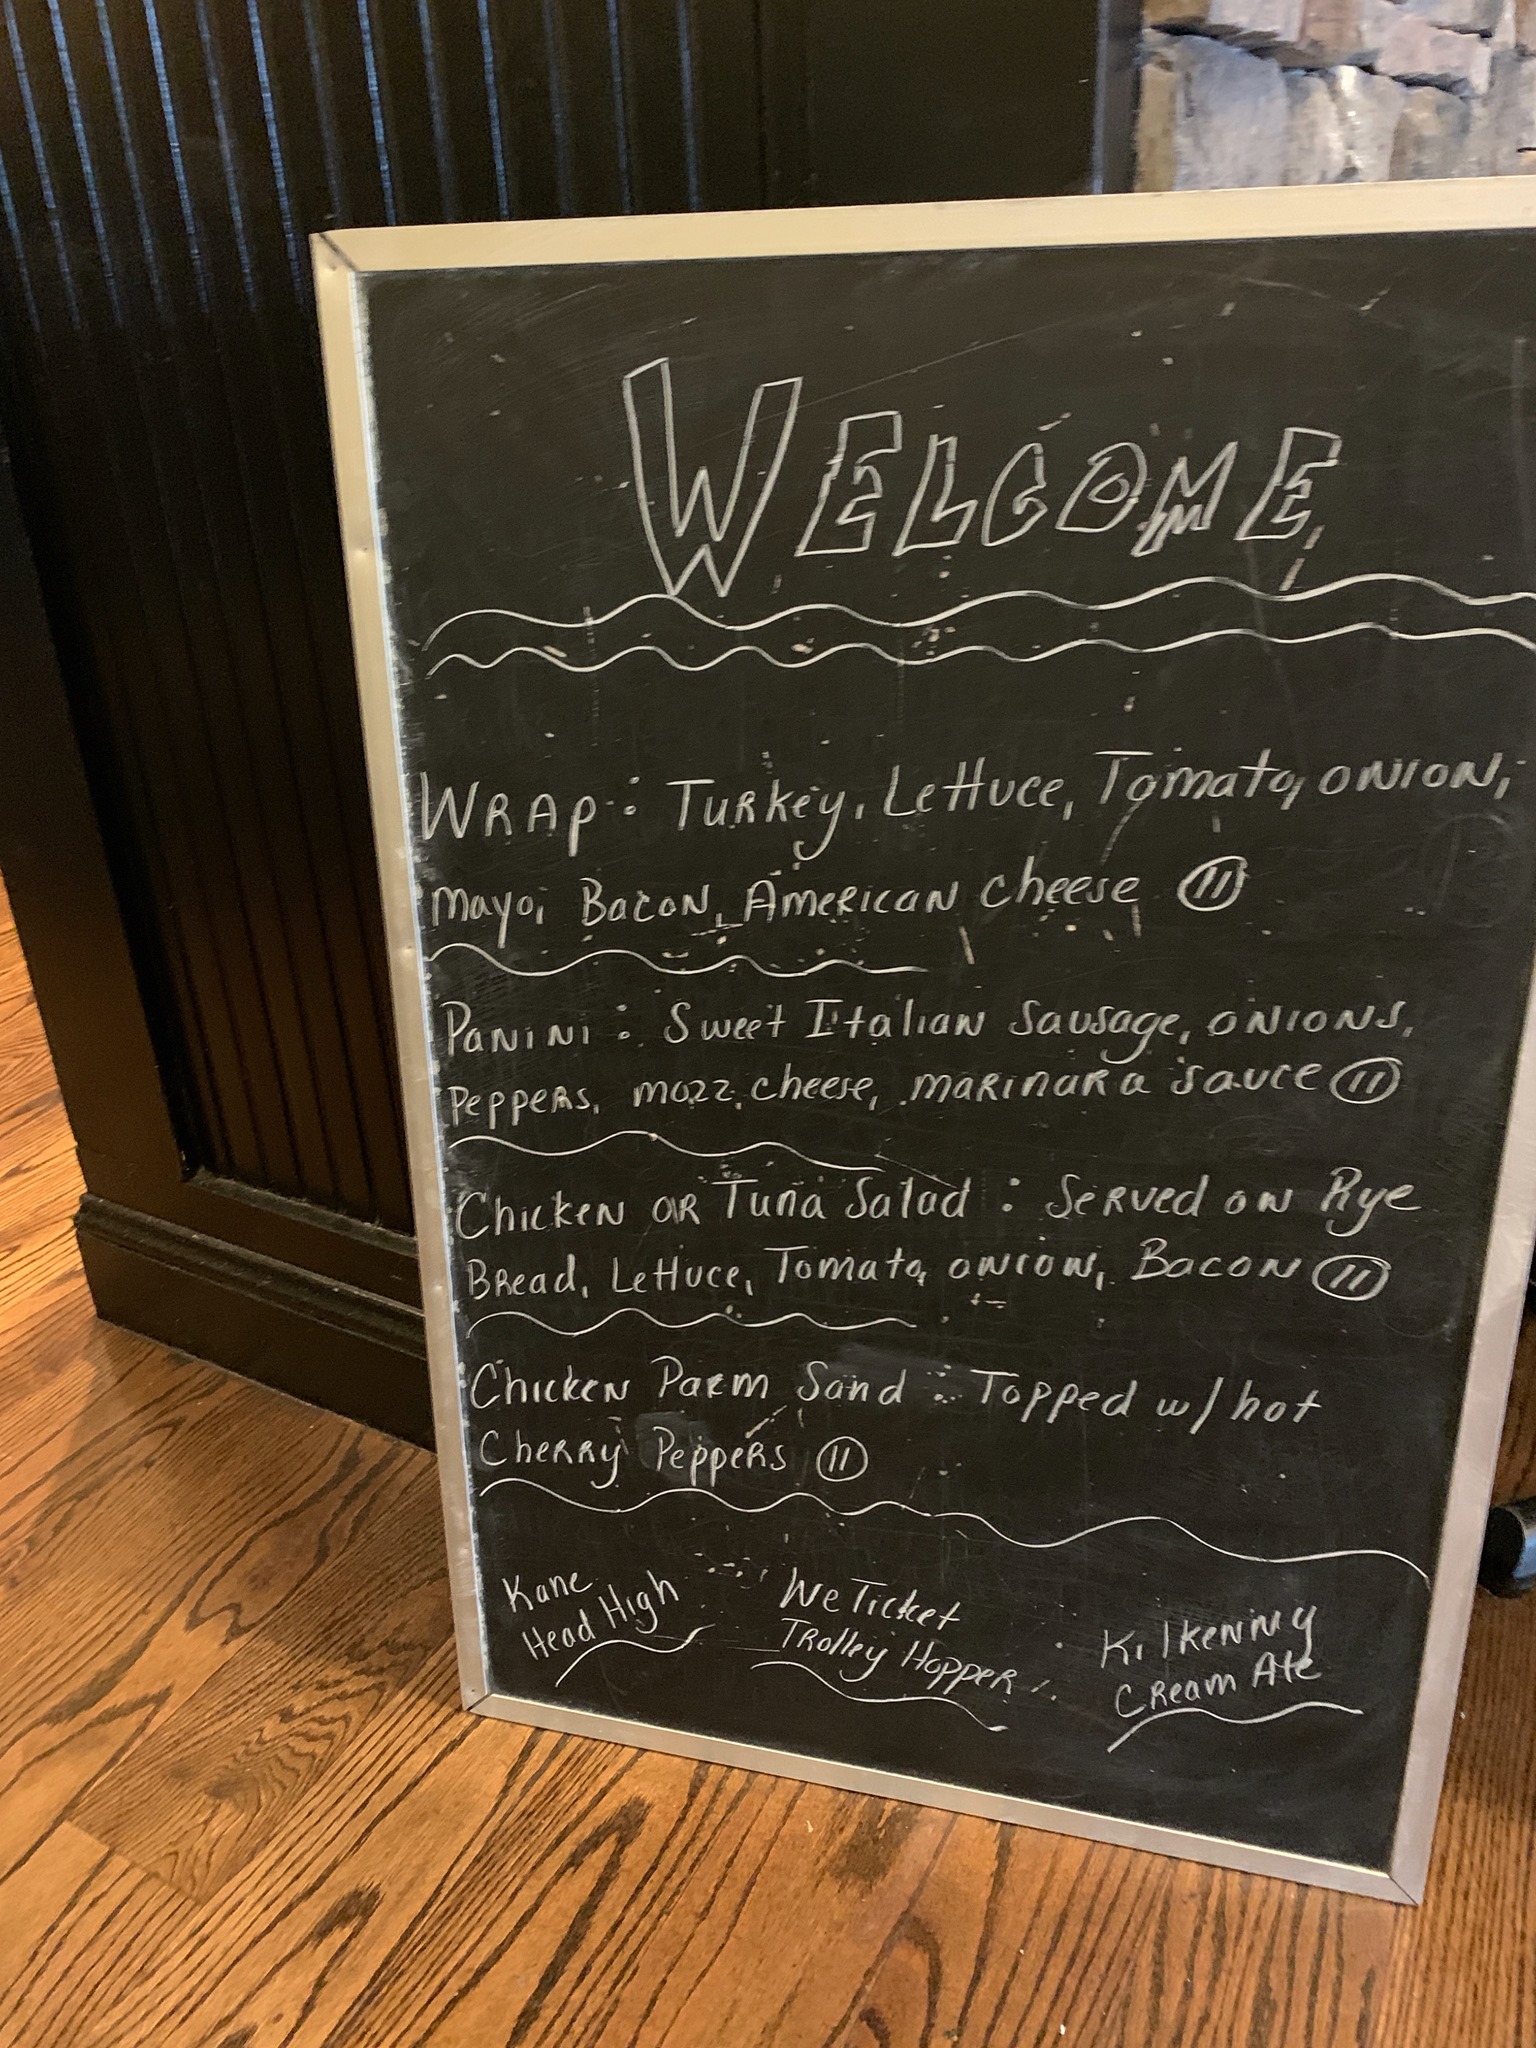 WELCOME
WRAP: TURKey, LeTTuce, Tomato, ONION,
Mayo, BacoN, AMERICAN cheese 11
PANINI: Sweet ItaliaN Sausage, ONIONS,
PePPeRs, mozz. cheese, MARINARa sauce 11
ChickeN OR Tuna Salad: SeRved oN Rye
BRead, LeTTuce, Tomato, oNioN, BacoN 11
ChickeN PaRm Sand: Topped w/ hot
CheRRy PeppeRs 11
Kane
Head High
We Ticket
TRolley HoppeR
KilkeNNy
CReam Ale